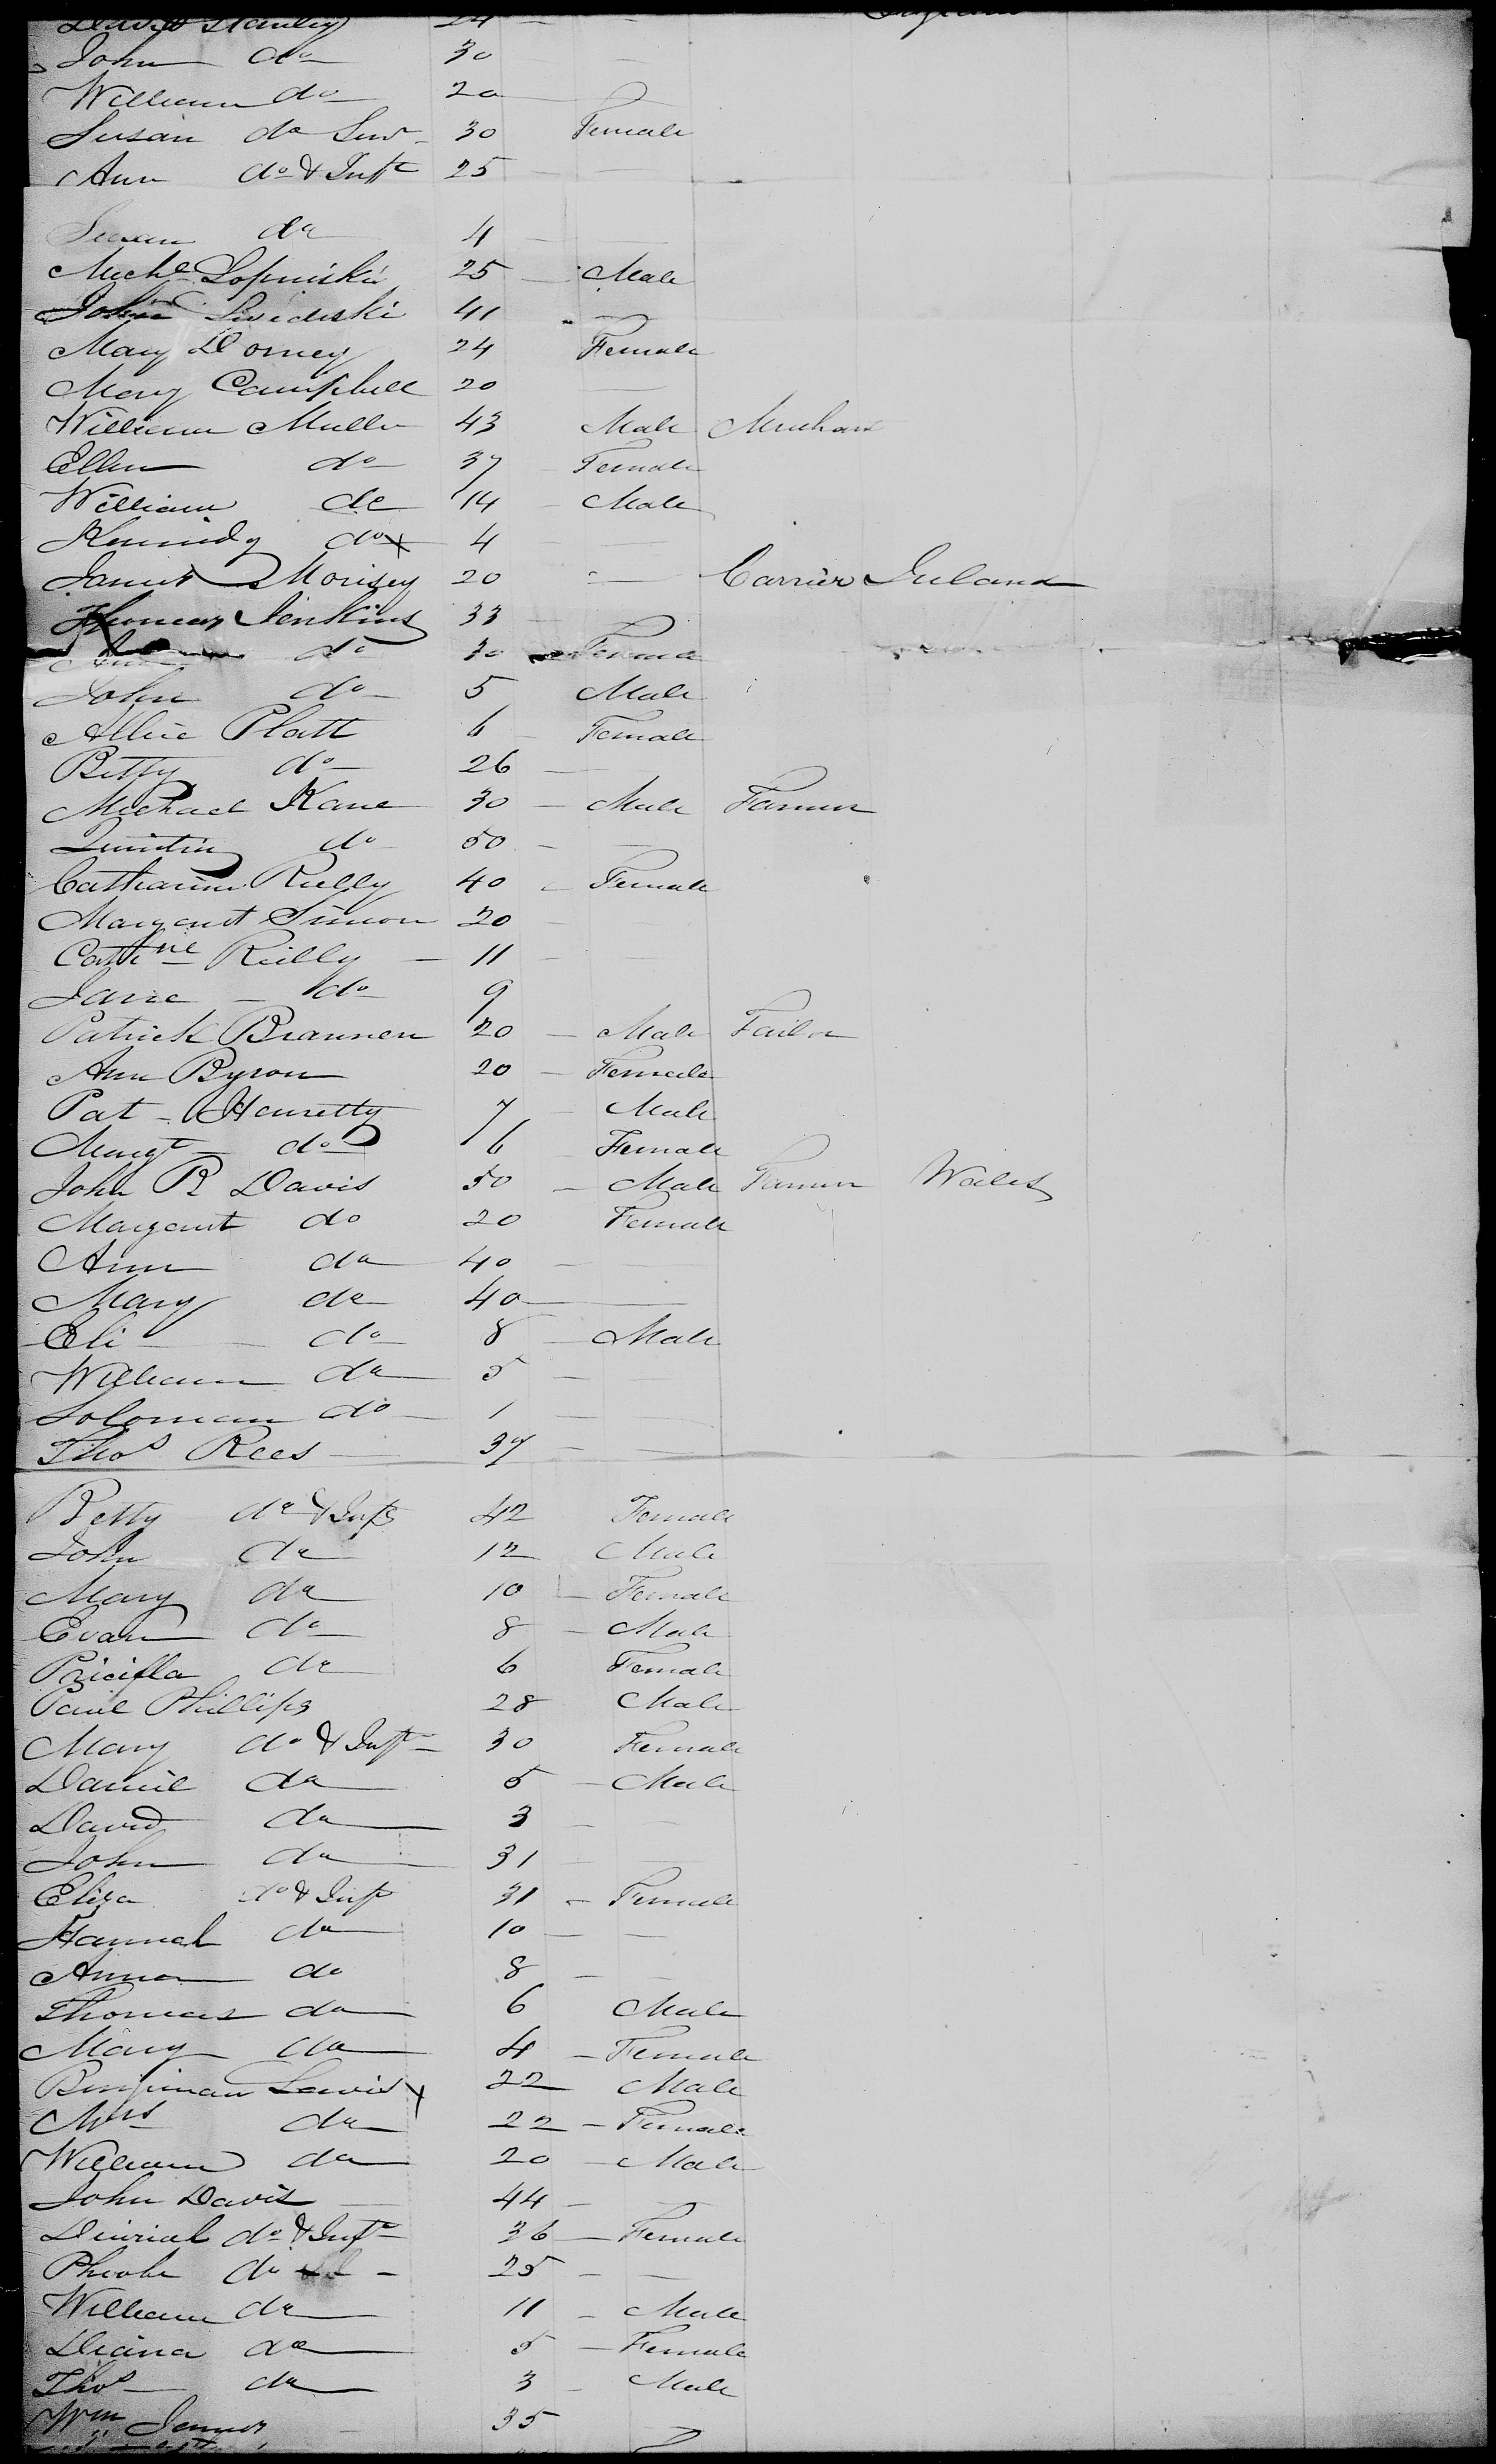 David Stanley 24 — — England
John do 30 —
William do 20 —
Susan do Senr 30 Female
Ann do & Inft 25 —
Susan do 4 —
Michl Lopniski 25 — Male
John Swideski 41 —
Mary Dorney 24 Female
Mary Campbell 20 —
William Muller 43 Male
Ellen do 37 Female
William do 14 Male
Kennedy do x 4 —
James Morisey 20 — Carrier Ireland
Thomas Jenkins 33 —
do 30 Female
John do 5 Male
Allice Platt 6 Female
Betty do 26 —
Michael Kane 30 — Male Farmer
Quintin do 50 —
Catharine Reilly 40 Female
Margaret Simon 20 —
Cathne Reilly — 11 —
Jane — do 9
Patrick Brannen 20 — Male Tailor
Ann Byron 20 — Female
Pat Henretty 7 Male
Margt do 6 Female
John R Davis 50 — Male Farmer Wales
Margaret do 20 Female
Ann do 40 —
Mary do 40 —
Eli do 8 — Male
William do 5 —
Soloman do 1 —
Thos Rees — 37 —
Betty do & Inft 42 Female
John do 12 Male
Mary do 10 — Female
Evan do 8 — Male
Pricilla do 6 Female
Paul Phillips 28 Male
Mary do & Inft 30 Female
Daniel do 5 — Male
David do 3 —
John do 31 —
Eliza do & Inft 31 — Female
Hannah do 10 —
Anna do 8 —
Thomas do 6 Male
Mary do 4 — Female
Benjiman Lewis x 22 Male
Mrs do 22 — Female
William do 20 — Male
John Davis — 44 —
Dinriah do & Inft 36 — Female
Pheobe do 25 —
William do 11 — Male
Diana do 5 — Female
Thos do 3 — Male
Wm James 35